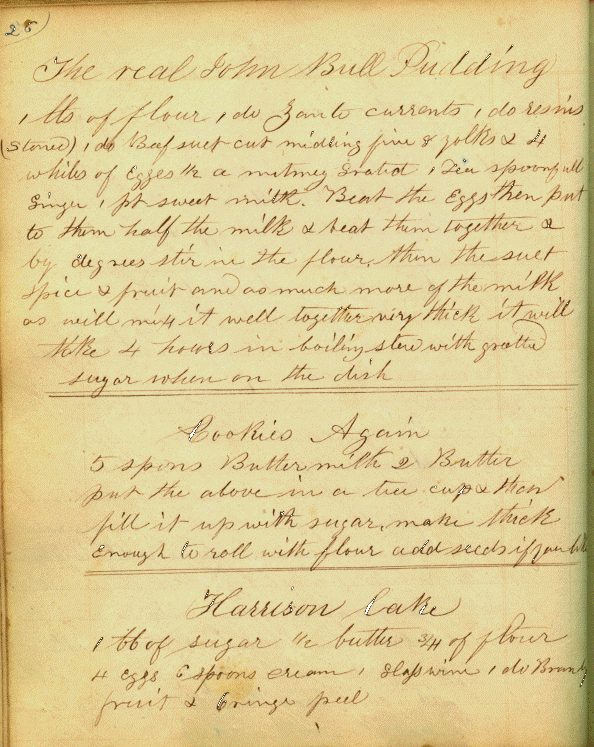 28
The real John Bull Pudding
1 lb of flour 1 do Zante currents 1 do resins
(Stoned) 1 do Beef suet cut midling fine 8 yolks & 4
whites of Egges 1/2 a nutmeg Gratid 1 Tea spoonfull
Ginger 1 pt sweet milk. Beat the Eggs then put
to them half the milk & beat them together &
by degrees stir in the flour, then the suet
spice & fruit and as much more of the milk
as will mix it well together very thick it will
take 4 hours in boiling strew with grated
sugar when on the dish
Cookies Again
5 spons Buttermilk 2 Butter
put the above in a tea cup & then
fill it up with sugar, make thick
Enough to roll with flour add seeds if you like
Harrison Cake
1 lb of sugar 1/2 butter 3/4 of flour
4 Eggs 6 spoons cream 1 Glass wine 1 do Brandy
fruit & peel